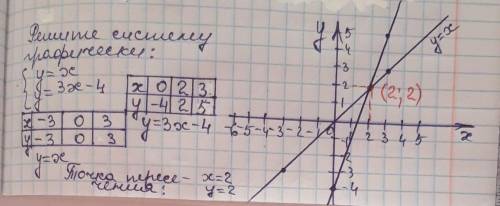 Решите систему
графически:
y=x
y=3x-4
x 0 2 3
y -4 2 5
y=3x-4
x -3 0 3
y -3 0 3
y=x
Точка пересе- x=2
чения: y=2
y
5
4
3
2
1
-6 -5 -4 -3 -2 -1 0 1 2 3 4 5 x
-3
-4
y=x
(2; 2)